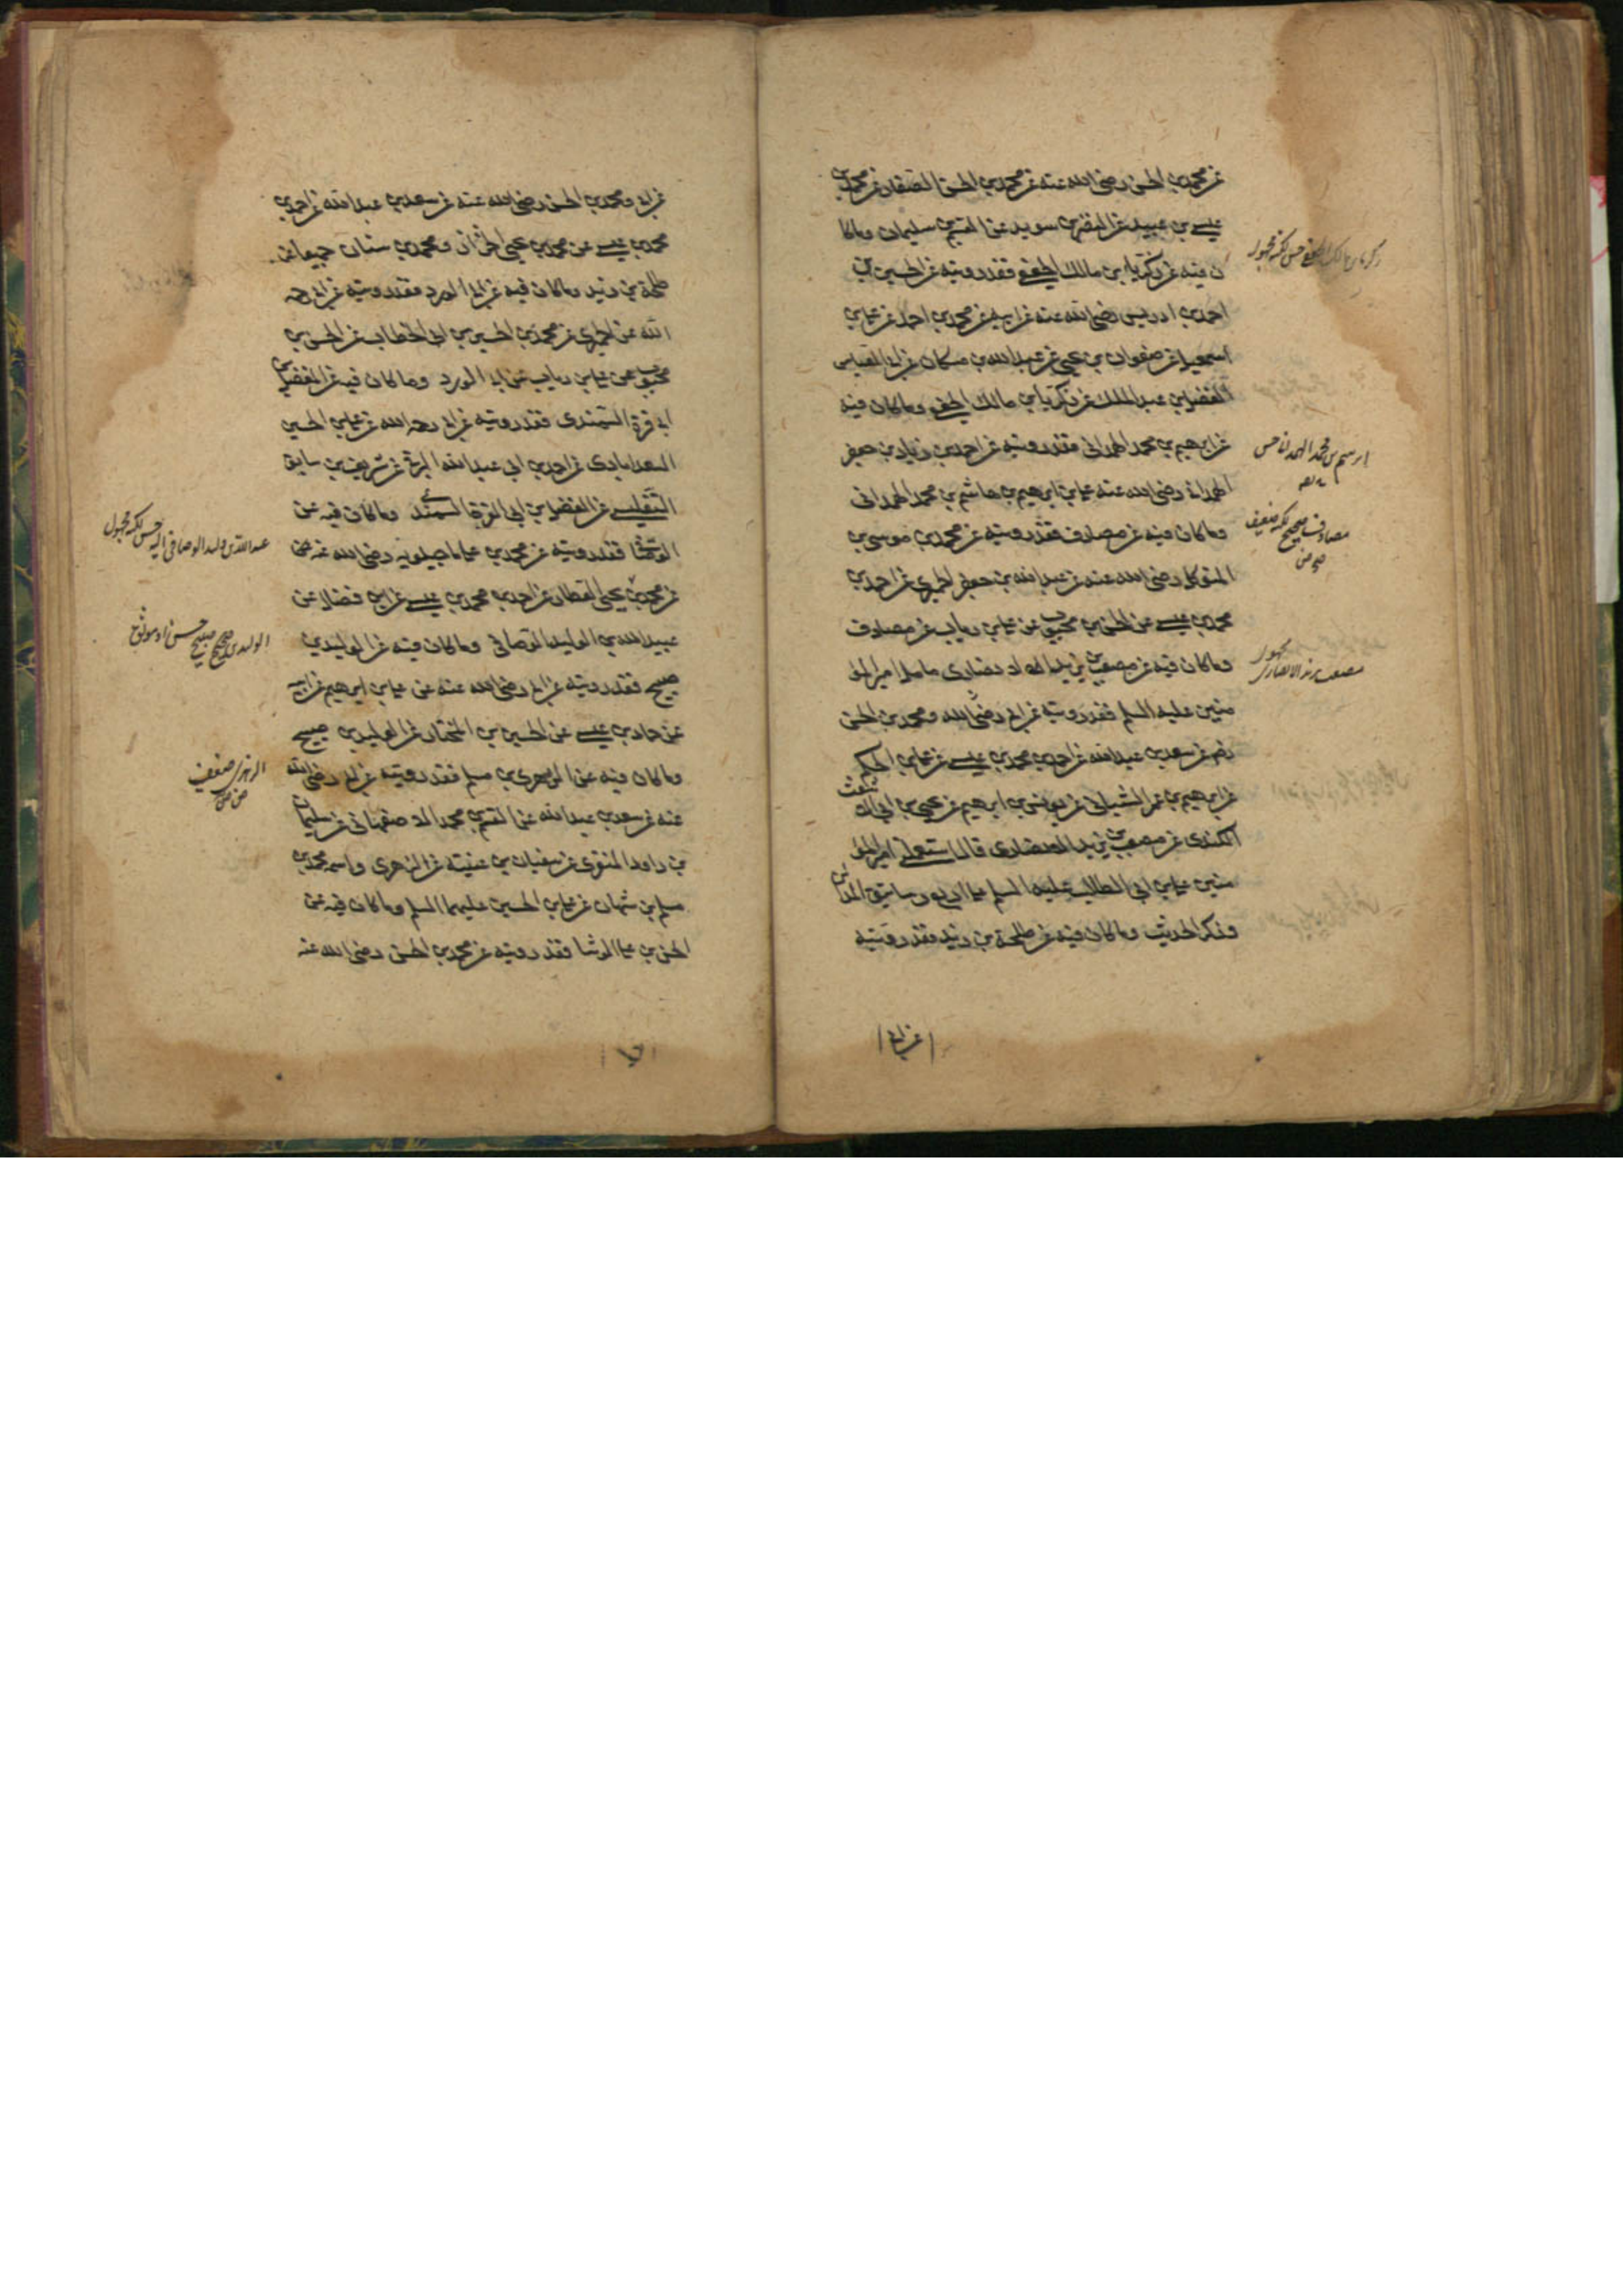 عن محمد بن الحسن رضي الله عنه عن محمد بن الحسن الصفار عن محمد بن
عيسى بن عبيد عن النضر بن سويد عن القسم بن سليمان وما كا
ن فيه عن زكريا بن مالك الجعفي فقد رويته عن الحسين بن
احمد بن ادريس رضي الله عنه عن ابيه عن محمد بن احمد عن علي بن
اسمعيل عن صفوان بن يحيى عن عبد الله بن مسكان عن ابي العباس
الفضل بن عبد الملك عن زكريا بن مالك الجعفي وما كان فيه
عن ابرهيم بن محمد الهمداني فقد رويته عن احمد بن زياد بن جعفر
الهمداني رضي الله عنه عن علي بن ابرهيم بن هاشم بن محمد الهمداني
وما كان فيه عن مصادف فقد رويته عن محمد بن موسى بن
المتوكل رضي الله عنه عن عبد الله بن جعفر الحميري عن احمد بن
محمد بن عيسى عن الحسن بن محبوب عن علي بن رياب عن مصادف
وما كان فيه عن مصعب بن يزيد الانصاري عامل امير المؤ
منين عليه السلم فقد رويته عن ابي رضي الله و محمد بن الحسن
رض عن سعد بن عبد الله عن احمد بن محمد بن عيسى عن علي بن الحكم
عن ابرهيم بن عمر الشيباني عن يونس بن ابرهيم عن يحيى بن ابي الاشعث
الكندي عن مصعب بن يزيد الانصاري قال استعملني امير المؤ
منين علي بن ابي الطالب عليه السلم على اربع رساتيق المدائن
وذكر الحديث وما كان فيه عن طلحة بن زيد فقد رويته
زكريا بن مالك الجعفي حسن لكنه مجهول
ابرهيم بن محمد الهمداني حسن
مصادف صحيح لكنه ضعيف
مصعب بن يزيد الانصاري مجهول
عن ابي
عن ابي ومحمد بن الحسن رضي الله عنه عن سعد بن عبد الله عن احمد بن
محمد بن عيسى عن محمد بن يحيى الخزاز ومحمد بن سنان جميعا عن
طلحة بن زيد وما كان فيه عن ابي الورد فقد رويته عن ابي رحمه
الله عن الحميري عن محمد بن الحسين بن ابي الخطاب عن الحسن بن
محبوب عن علي بن رياب عن ابي الورد وما كان فيه عن الفضل بن
ابي قرة السمندي فقد رويته عن ابي رحمه الله عن علي بن الحسين
السعدابادي عن احمد بن ابي عبد الله البرقي عن شريف بن سابق
التفليسي عن الفضل بن ابي القرة السمندي وما كان فيه عن
الوصافي فقد رويته عن محمد بن علي ماجيلويه رضي الله عنه عن
عن محمد بن يحيى العطار عن احمد بن محمد بن عيسى عن ابن فضال عن
عبيد الله بن الوليد الوصافي وما كان فيه عن الوليد بن
صبيح فقد رويته عن ابي رضي الله عنه عن علي بن ابرهيم عن ابيه
عن حماد بن عيسى عن الحسين بن المختار عن الوليد بن صبيح
وما كان فيه عن الزهري بن مسلم فقد رويته عن ابي رضي الله
عنه عن سعد بن عبد الله عن القسم بن محمد الاصفهاني عن سليمان
بن داود المنقري عن سفيان بن عيينه عن الزهري واسمه محمد بن
مسلم بن شهاب عن علي بن الحسين عليهما السلم وما كان فيه عن
الحسن بن علي الوشا فقد رويته عن محمد بن الحسن رضي الله عنه
عبد الله بن وليد الوصافي اليه حسن لكنه مجهول
الوليد بن صبيح صحيح حسن او موثق
الزهري ضعيف